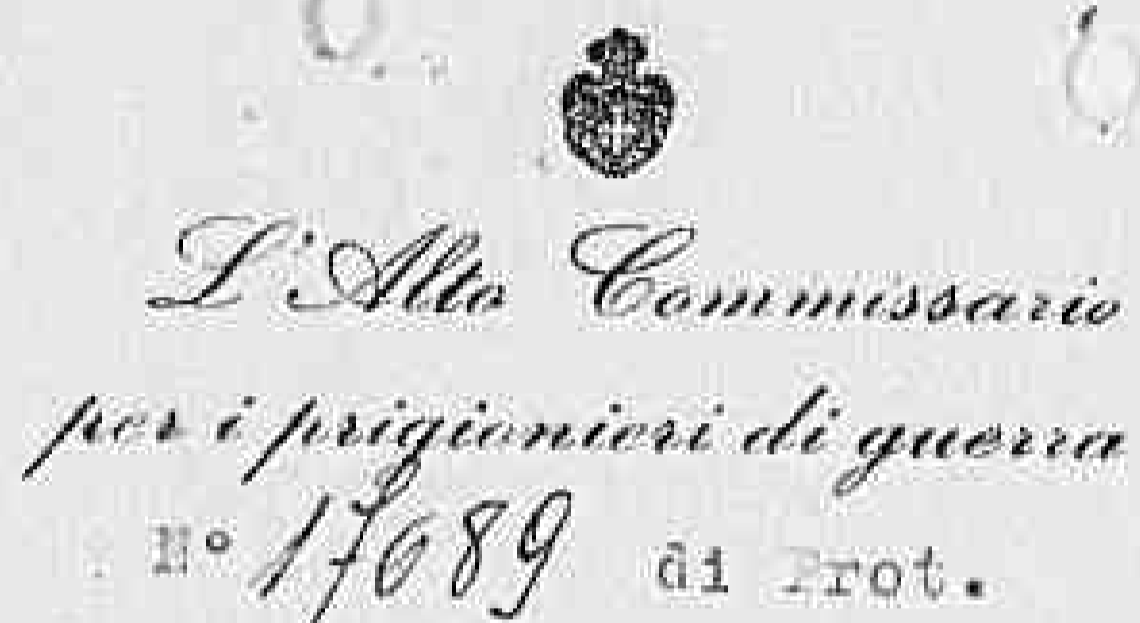 L'Alto Commissario
per i prigionieri di guerra
N° 17689 di Prot.